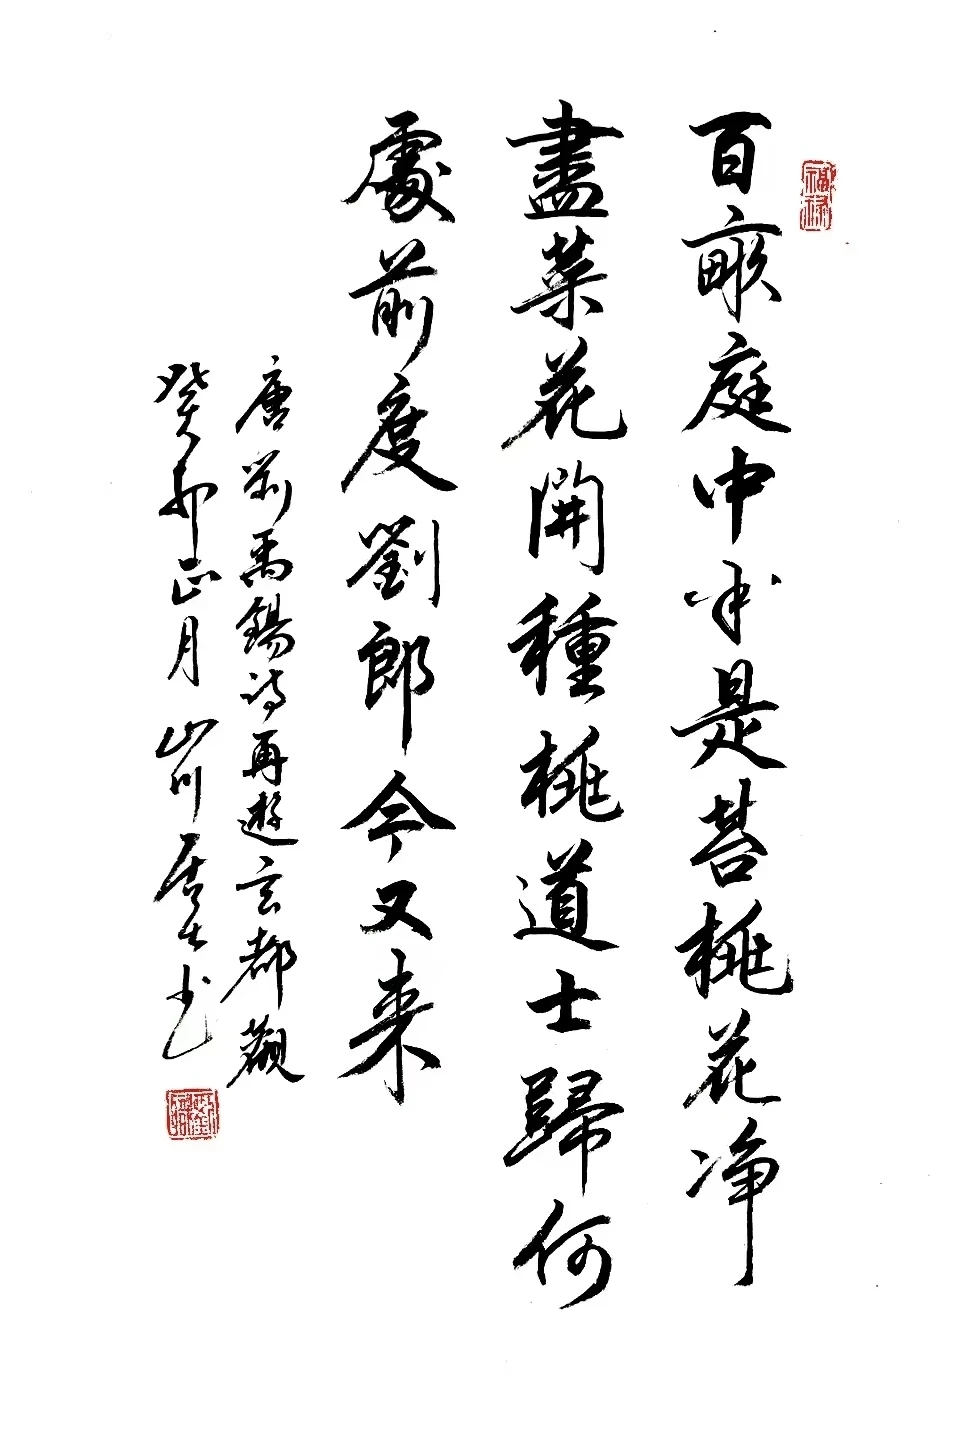 百畝庭中半是苔桃花净
盡菜花開種桃道士歸何
處前度劉郎今又来
唐劉禹錫诗再遊玄都觀
癸卯正月山川居士书
福禄